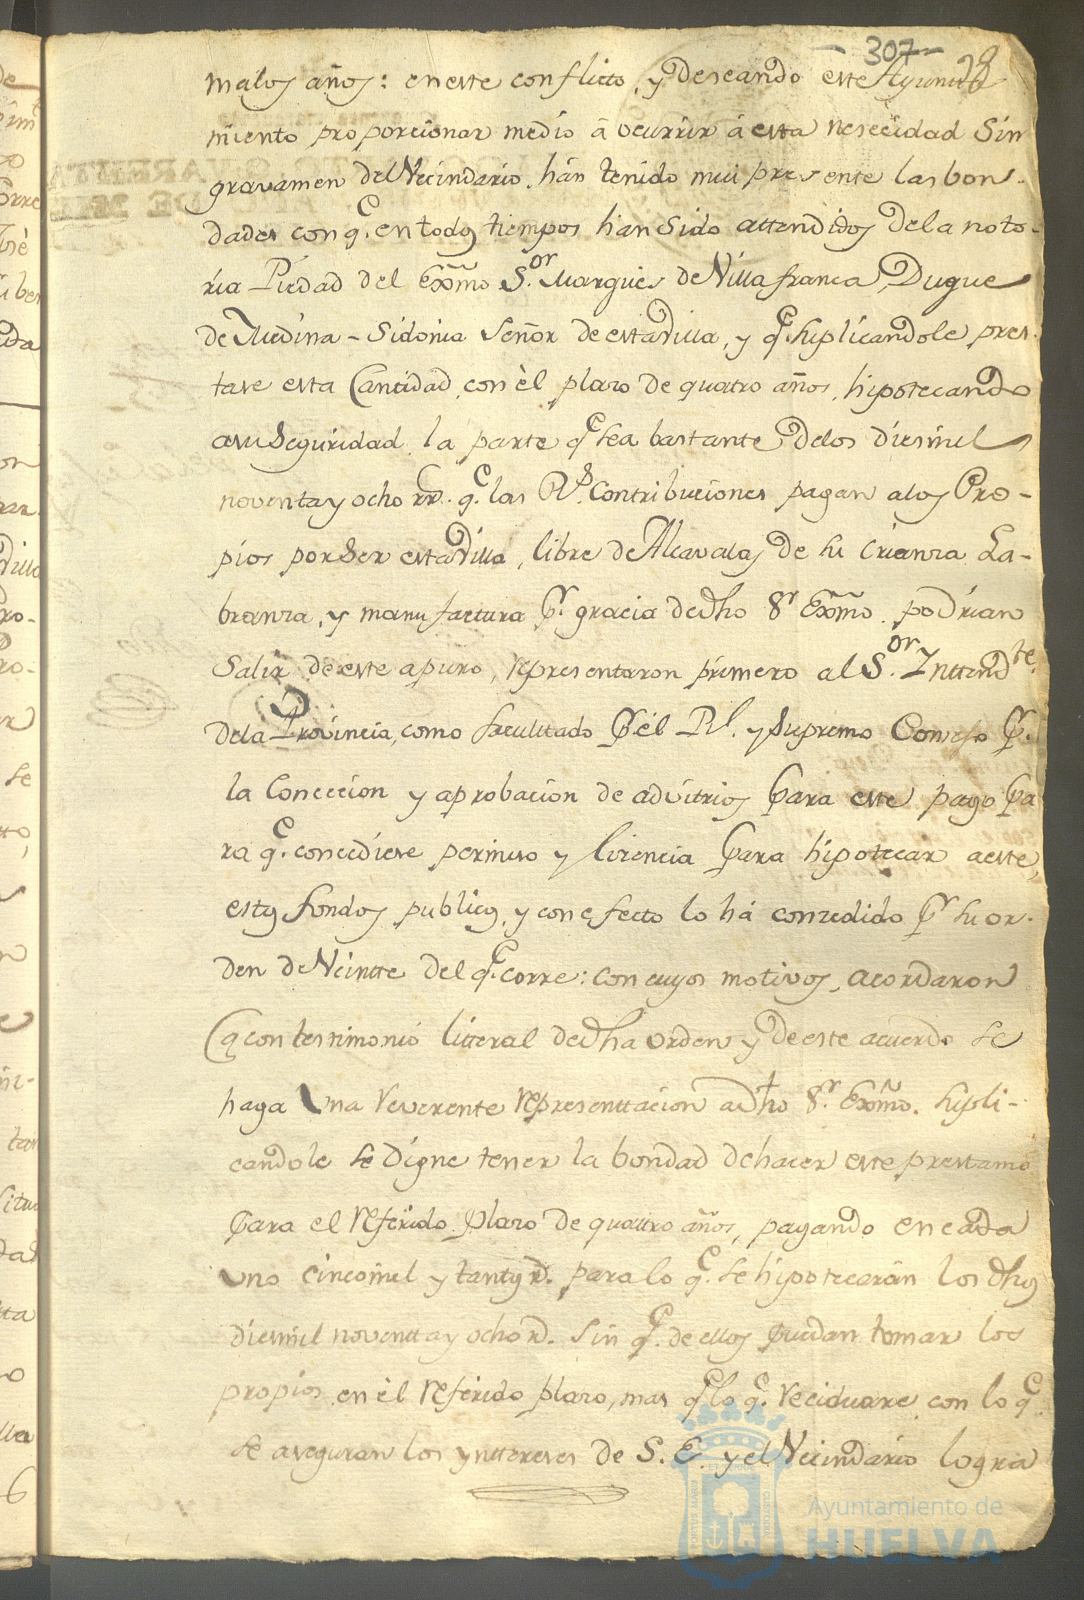 - 307 -
malos años: en este conflicto, y deseando este Ayunta
miento proporcionar medio â ocurrir â esta nesecidad Sin
gravamen del Vecindario, hán tenido mui presente las bon-
dades con q.e en todos tiempos han Sido attendidos de la noto-
ria Piedad del Exmo S.or Marques de Villafranca, Duque
de Medina-Sidonia Señor de esta Villa, y q.e suplicandole pres-
tase esta Cantidad, con èl plazo de quatro años, hipotecando
a su Seguridad la parte q.e sea bastante de los diesmil
noventa y ocho rr. q.e las R.s Contribuciones pagan a los Pro-
pios por Ser esta Villa, libre de Alcavalas de su crianza La-
branza, y manufactura p.r gracia de dho S.r Exmo. podrian
Salir de este apuro, representaron primero al S.or Yntend.te
de la Provincia, como facultado p.r èl Rl. y Supremo Consejo p.a
la Concecion y aprobacion de advitrios para este pago pa
ra q.e concediese permiso y licencia para hipotecar a este,
estos fondos publicos, y con efecto lo há concedido p.r su or-
den de Veintte del q.e corre: con cuyos motivos, acordaron
q con testimonio litteral de dha orden y de este acuerdo se
haga Una reverente representtacion a dho S.r Exmo. supli-
candole se digne tener la bondad de hacer este prestamo
para el referido plazo de quattro años, pagando en cada
uno cincomil y tantos r.s para lo q.e se hipotecarán los dhos
diesmil noventta y ocho r.s Sin q.e de ellos puedan tomar los
propios en èl referido plazo, mas q.e lo q.e reciduare con lo q.e
se aseguran los ynttereses de S. E. y el Vecindario logra
Ayuntamiento de
HUELVA